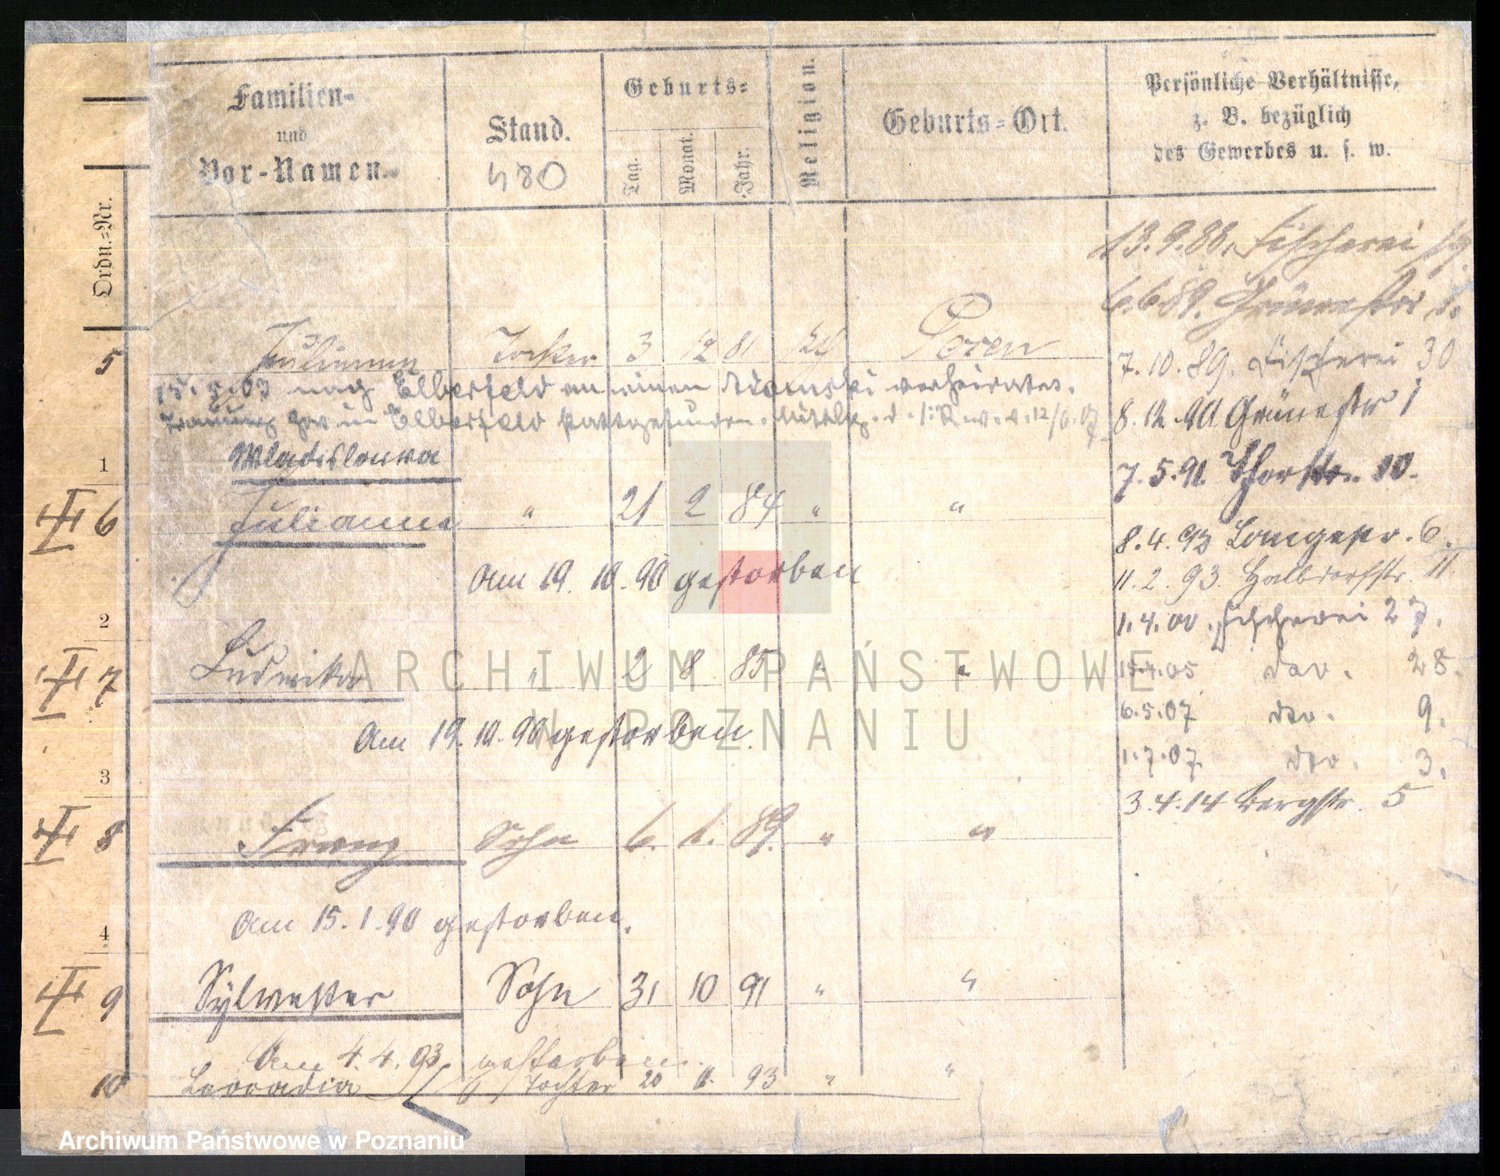 Familien-
und
Vor-Namen.
Stand.
480
Geburts-
Tag.
Monat.
Jahr.
Religion.
Geburts-Ort.
Persönliche Verhältnisse,
z. B. bezüglich
des Gewerbes u. s. w.
Ordn.-Nr.
13.9.88. Fischerei
6.6.89. Grünestr.
5 Julianna Tochter 3 12 81 Posen
7.10.89. Fischerei 30
15.3.03 nach Elberfeld an einen Adamski verheiratet.
Trauung in Elberfeld stattgefunden. 12/6.07
8.12.90 Grünestr 1
Wladislawa
7.5.91. Thorstr. 10.
1
6 Julianna " 21 2 84 " "
8.4.92 Langestr. 6.
am 19. 10. 90 gestorben
11.2.93. Halbdorfstr. 11
2
1.4.00. Fischerei 27.
7 Ludwika " 2 8 85 " "
15.4.05 do. 28.
6.5.07 do. 9.
am 19. 10. 90 gestorben.
1.7.07. do. 3.
3
3.4.14 Bergstr. 5
8 Franz Sohn 6. 1. 89. " "
am 15. 1. 90 gestorben.
4
9 Sylwester Sohn 31 10 91 " "
am 4. 4. 93 gestorben.
10 Leocadia Tochter 20 11. 93 " "
ARCHIWUM PAŃSTWOWE
W POZNANIU
Archiwum Państwowe w Poznaniu